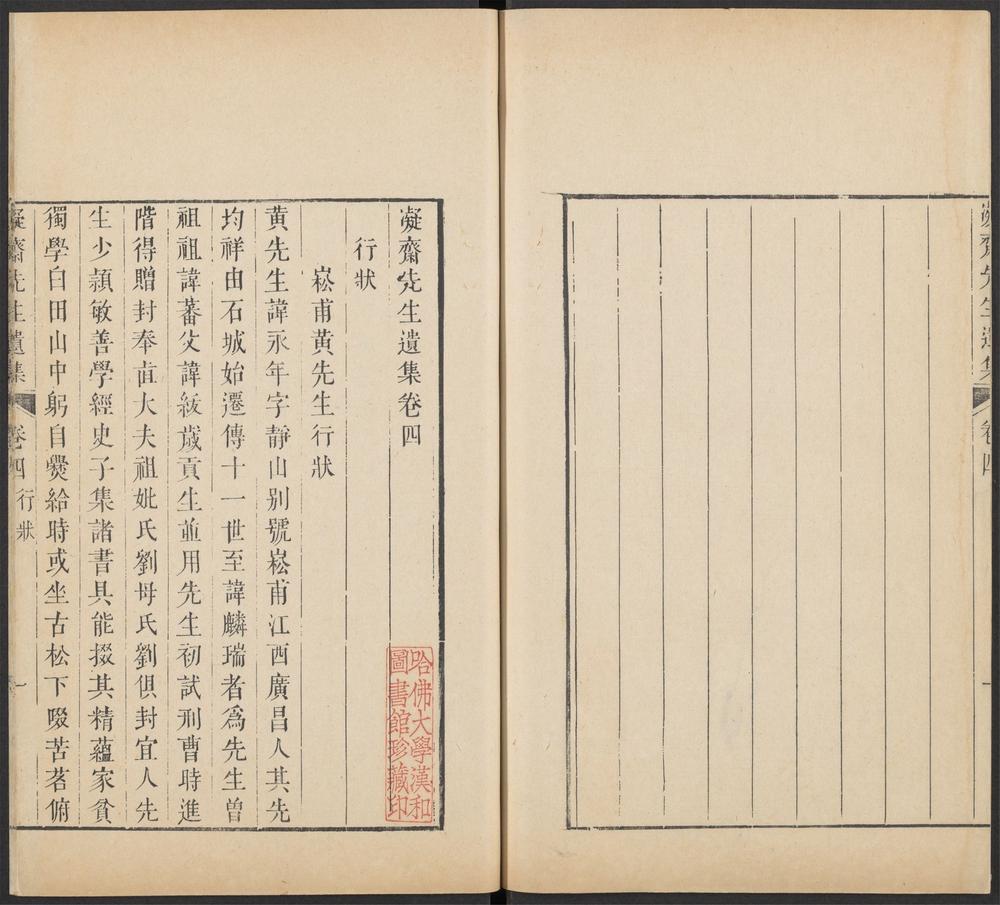 凝齋先生遺集
卷四
一
凝齋先生遺集卷四
行狀
崧甫黄先生行狀
黄先生諱永年字靜山別號崧甫江西廣昌人其先
均祥由石城始遷傳十一世至諱麟瑞者爲先生曾
祖祖諱蕃父諱紱歲貢生並用先生初試刑曹時進
階得贈封奉直大夫祖妣氏劉母氏劉俱封宜人先
生少頴敏善學經史子集諸書具能掇其精蘊家貧
獨學白田山中躬自爨給時或坐古松下啜苦茗俯
凝齋先生遺集
卷四
行狀
一
哈佛大學漢和
圖書館珍藏印